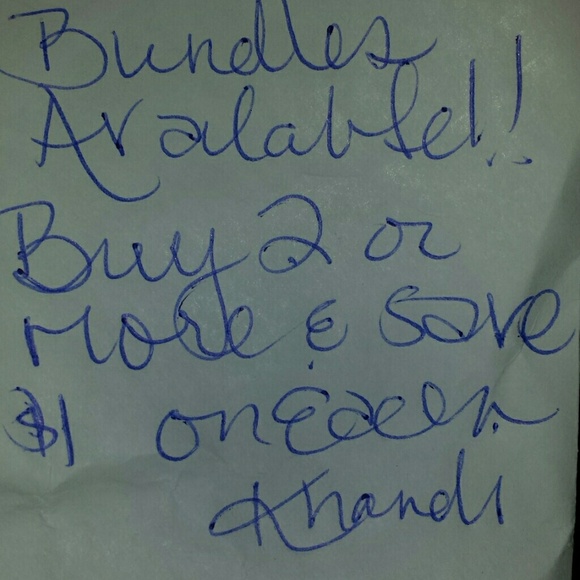 Bundles
Avalable!!
Buy 2 or
more & save
$1 on Each
Khandi